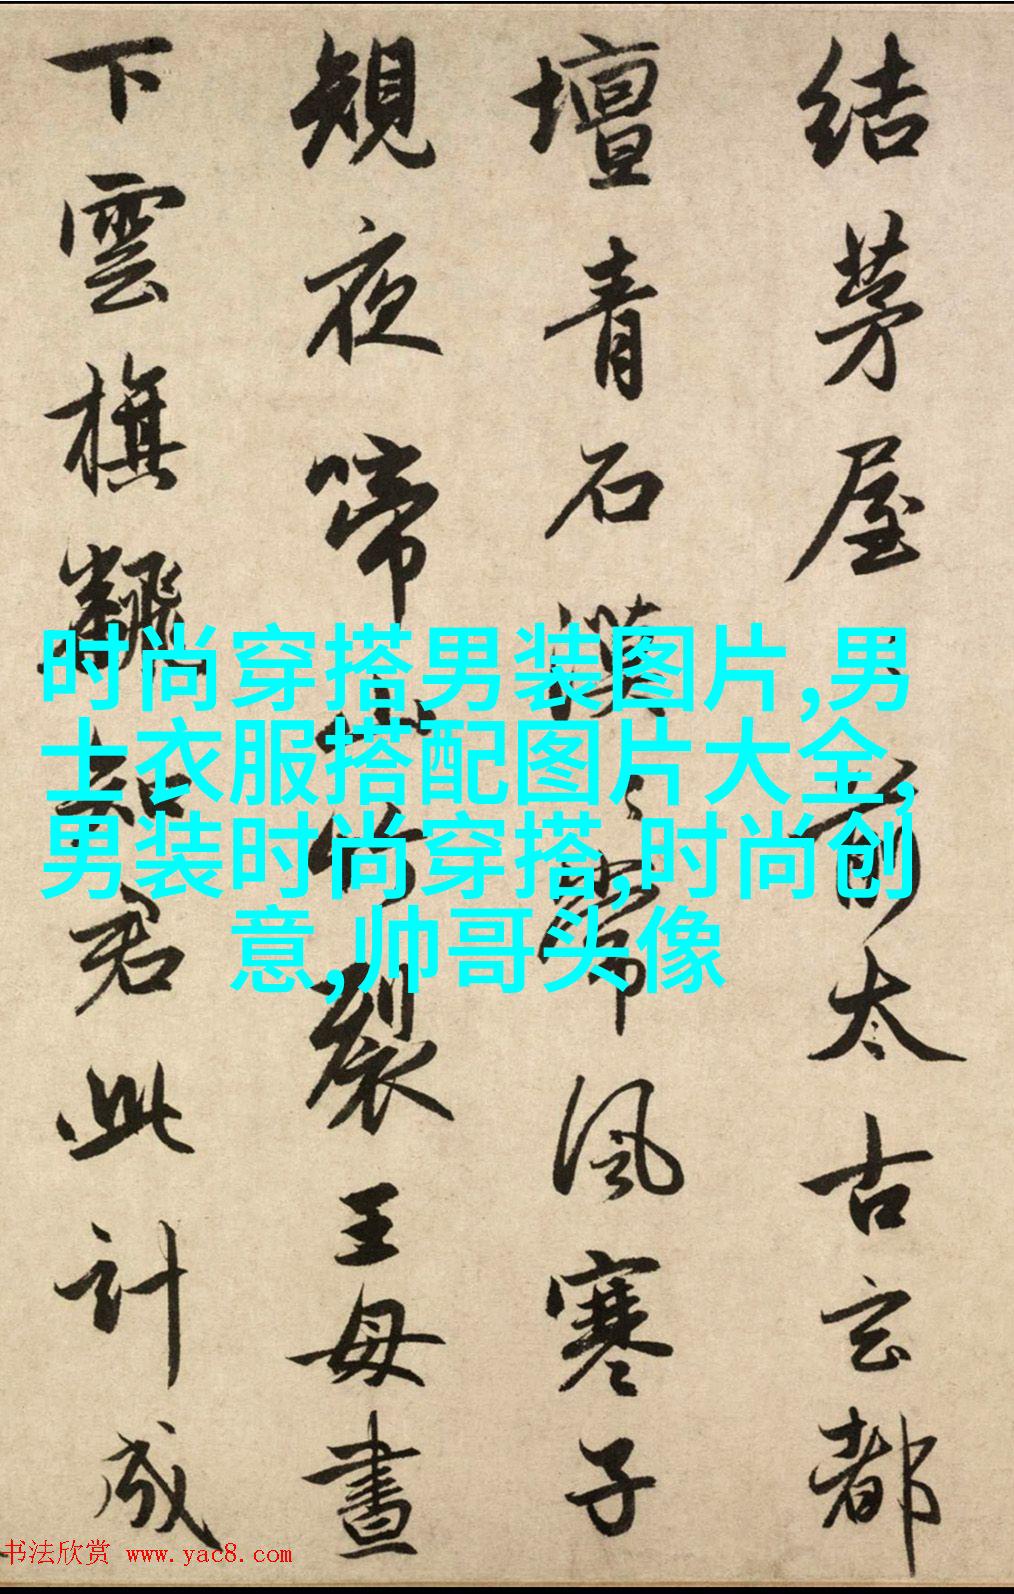 結茅屋前太古玄都
壇青石漠々常風寒子
規夜啼山竹裂王母晝
下雲旗飜知君此計成
时尚穿搭男装图片,男
士衣服搭配图片大全,
男装时尚穿搭,时尚创
意,帅哥头像
书法欣赏 www.yac8.com